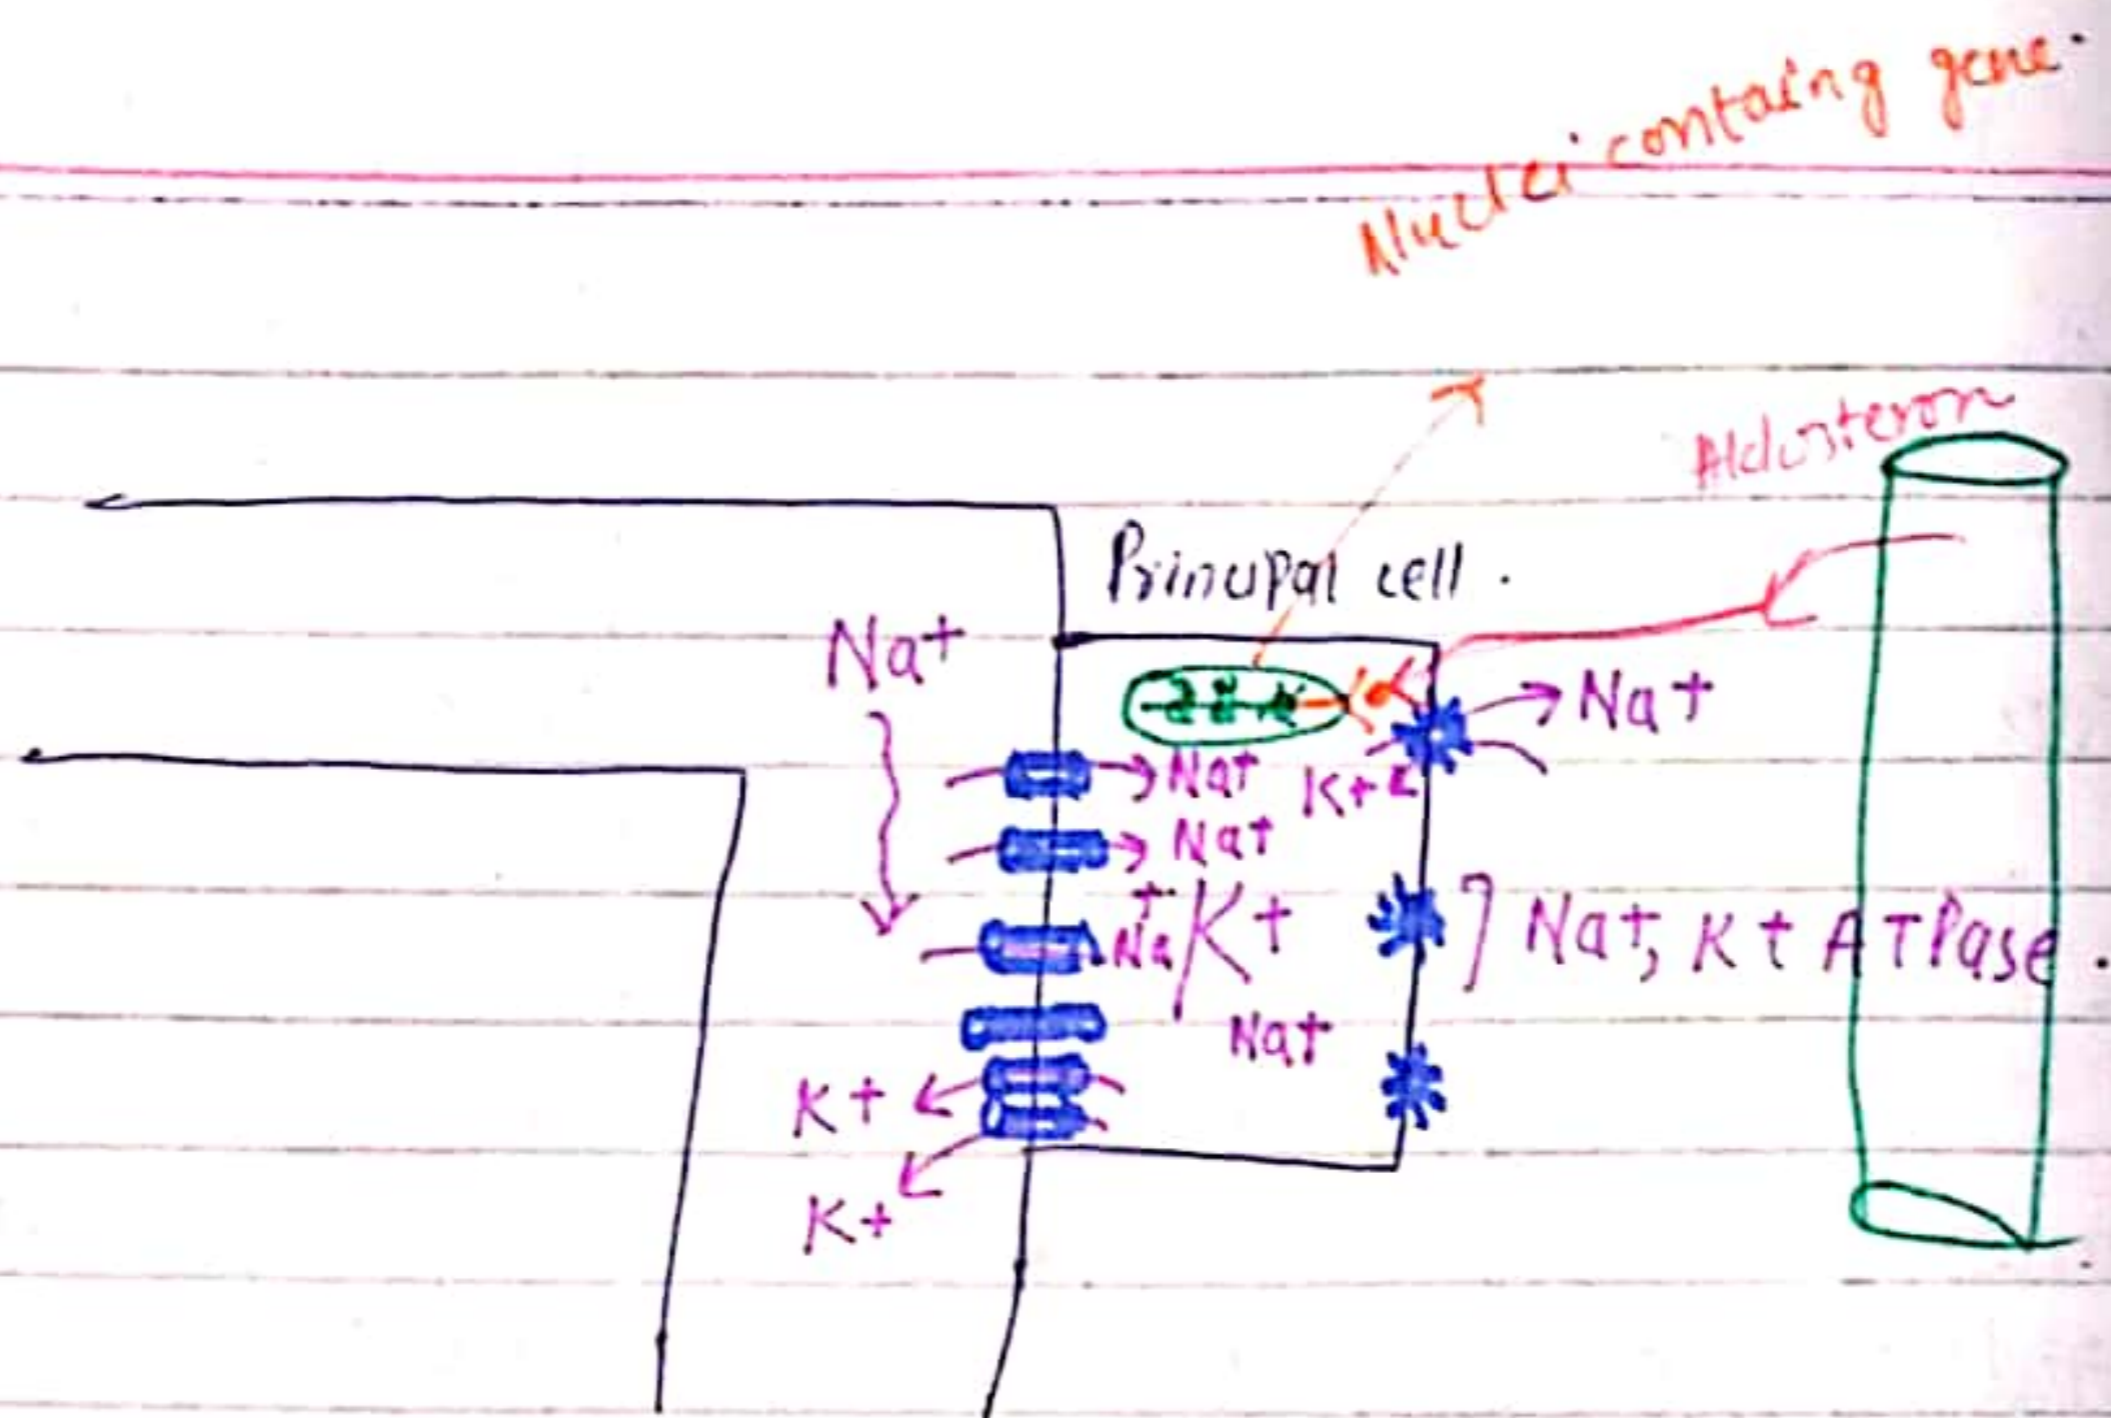 Nuclei containg gene.
Aldosteron
Principal cell.
Na+
Na+
Na+
K+
Na+
Na+ K+
Na+, K+ ATPase.
Na+
K+
K+